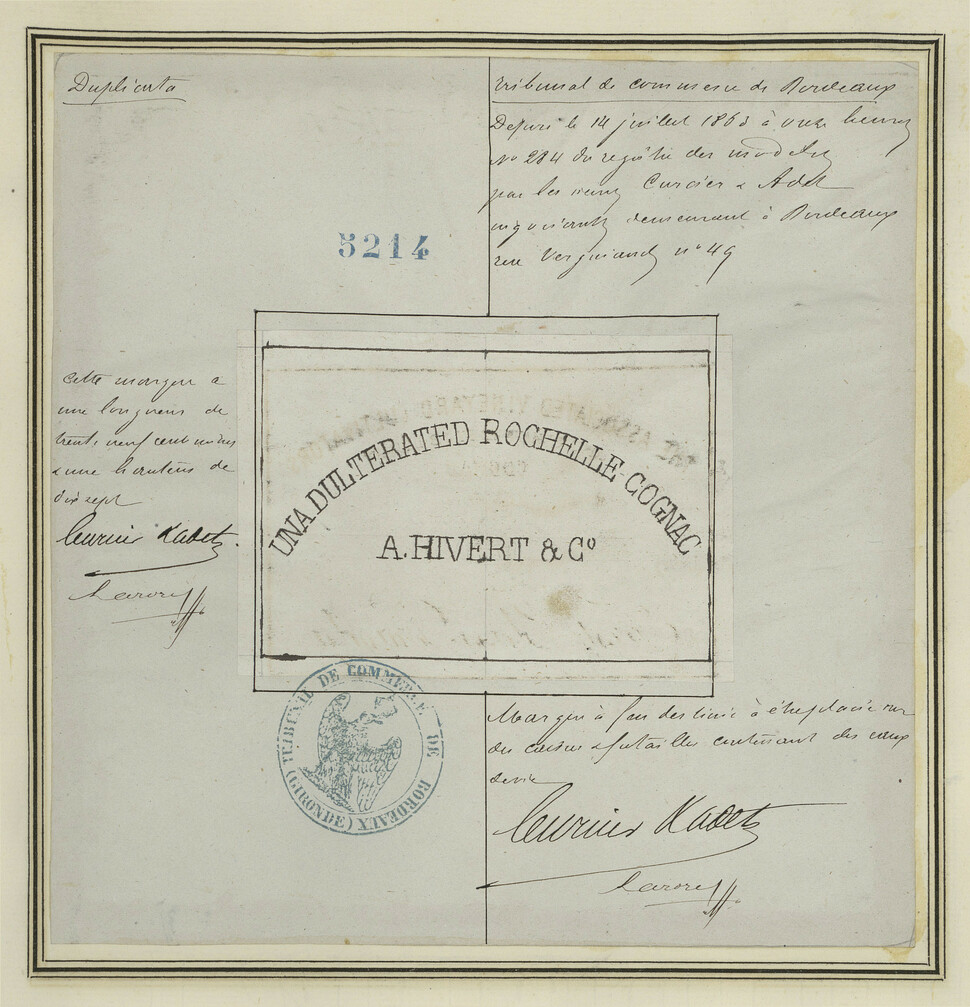 Duplicata
Tribunal de commerce de Bordeaux
Déposé le 14 juillet 1863 à onze heures
No 284 du registre des modèles
par les sieurs Cursier & Adet
négociants demeurant à Bordeaux
rue Vergniaud no 49
5214
Cette marque a
une longueur de
trente neuf centimètres
& une hauteur de
dix sept
UNADULTERATED ROCHELLE COGNAC
A. HIVERT & Co
TRIBUNAL DE COMMERCE DE BORDEAUX (GIRONDE)
Marque à feu destinée à être placée sur
des caisses & futailles contenant des eaux
de vie